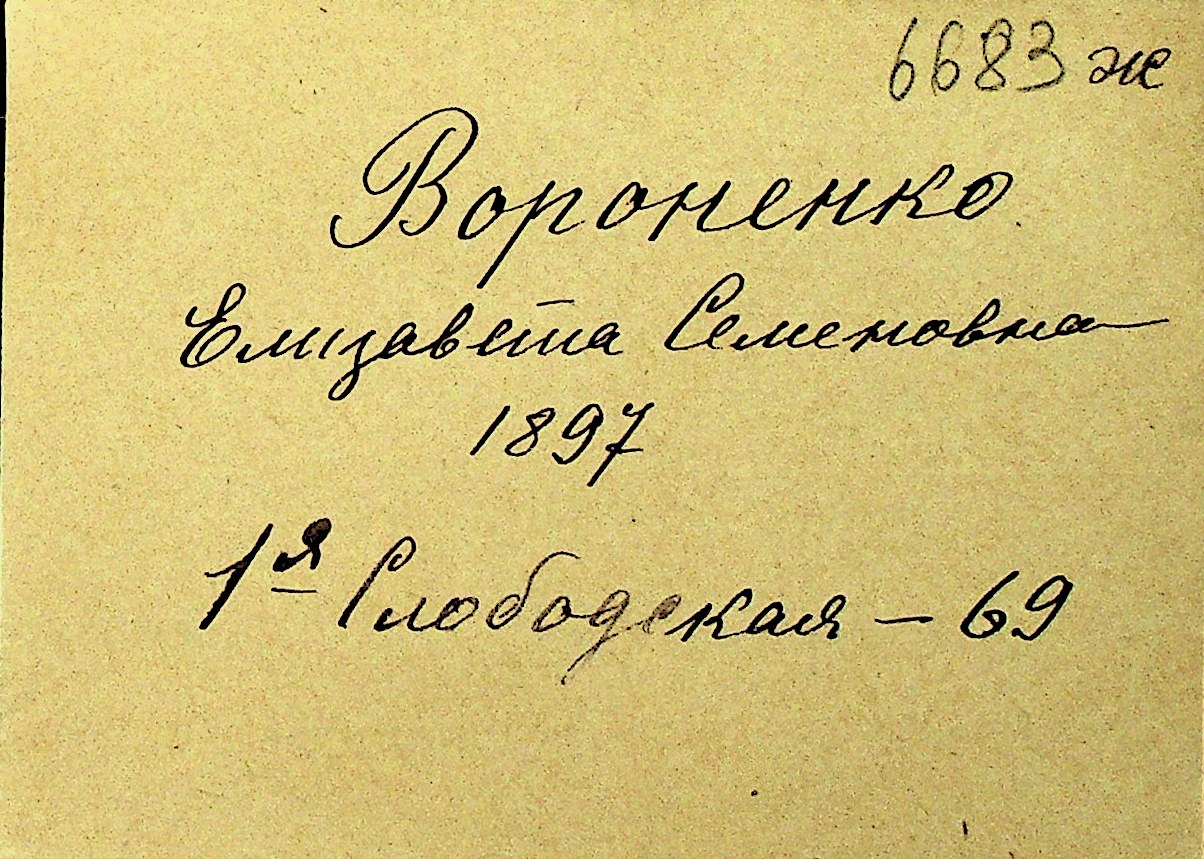 6683 ж
Вороненко
Елизавета Семеновна
1897
1я Слободская - 69